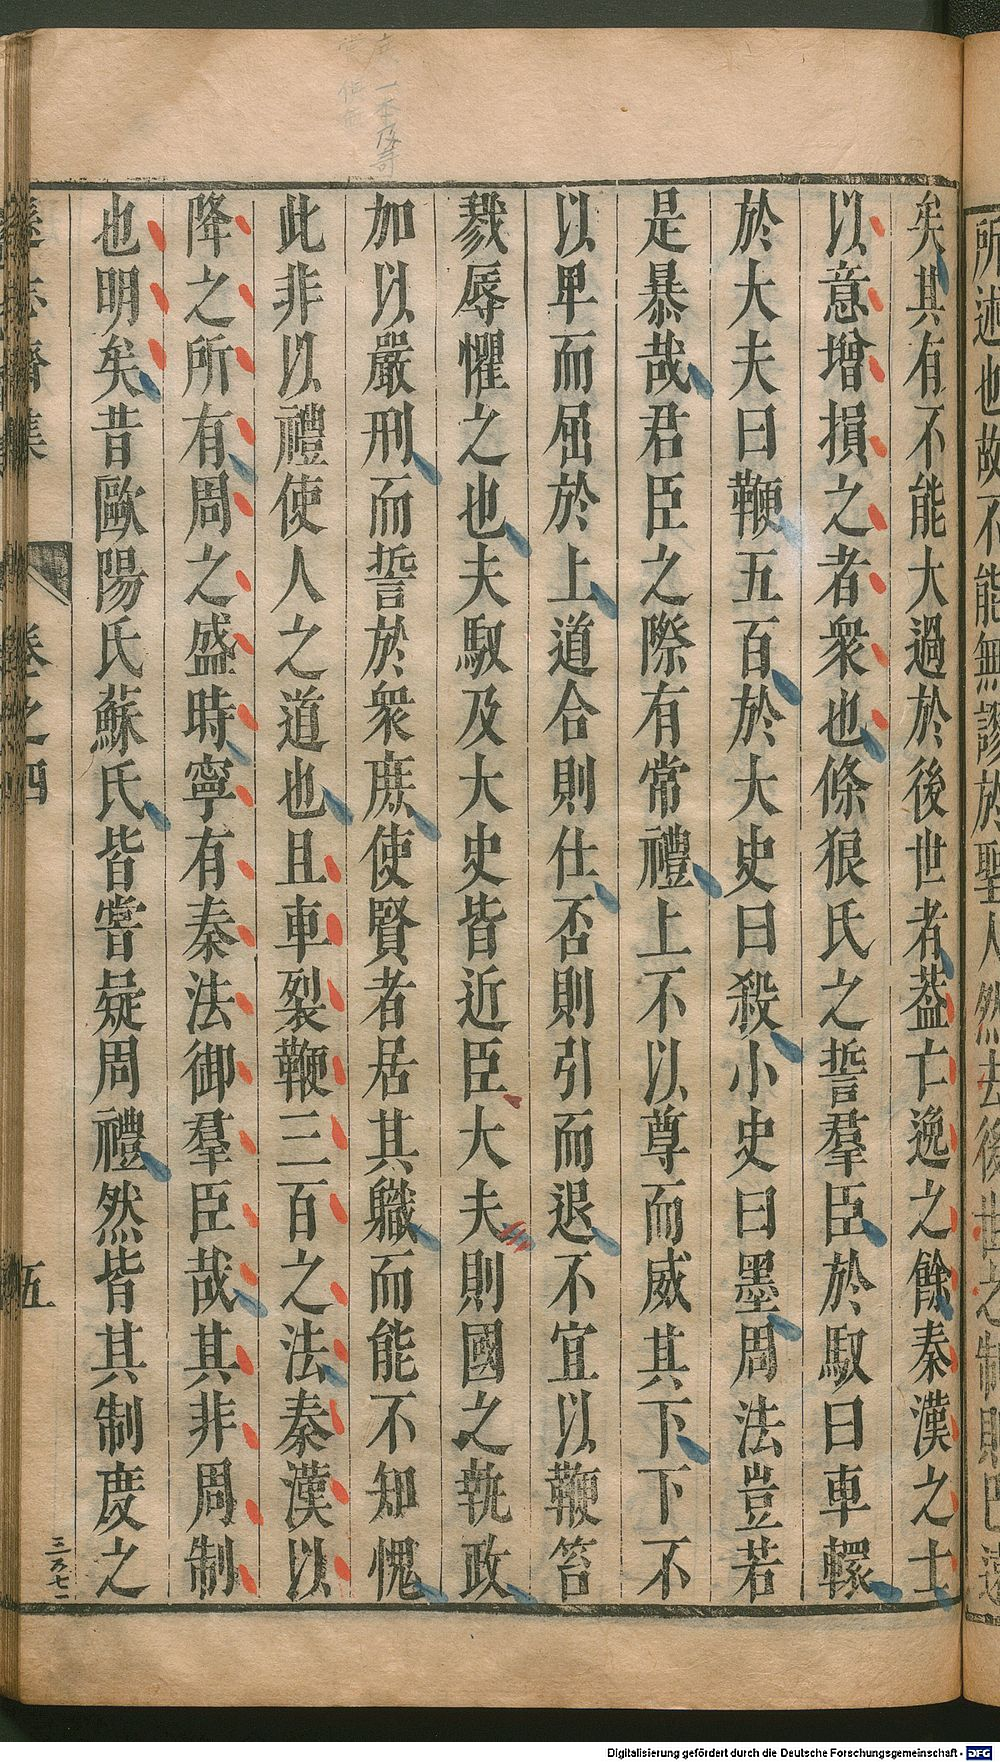 所述也故不能無謬於聖人然去後世之制則已遠
矣其有不能大過於後世者葢亡逸之餘秦漢之士
以意增損之者衆也條狼氏之誓羣臣於馭曰車轘
於大夫曰鞭五百於大史曰殺小史曰墨周法豈若
是暴哉君臣之際有常禮上不以尊而威其下下不
以卑而屈於上道合則仕否則引而退不宜以鞭笞
戮辱懼之也夫馭及大史皆近臣大夫則國之執政
加以嚴刑而誓於衆庶使賢者居其職而能不知愧
此非以禮使人之道也且車裂鞭三百之法秦漢以
降之所有周之盛時寧有秦法御羣臣哉其非周制
也明矣昔歐陽氏蘇氏皆嘗疑周禮然皆其制度之
遜志齋集
卷之四
五
三百七一
Digitalisierung gefördert durch die Deutsche Forschungsgemeinschaft - DFG